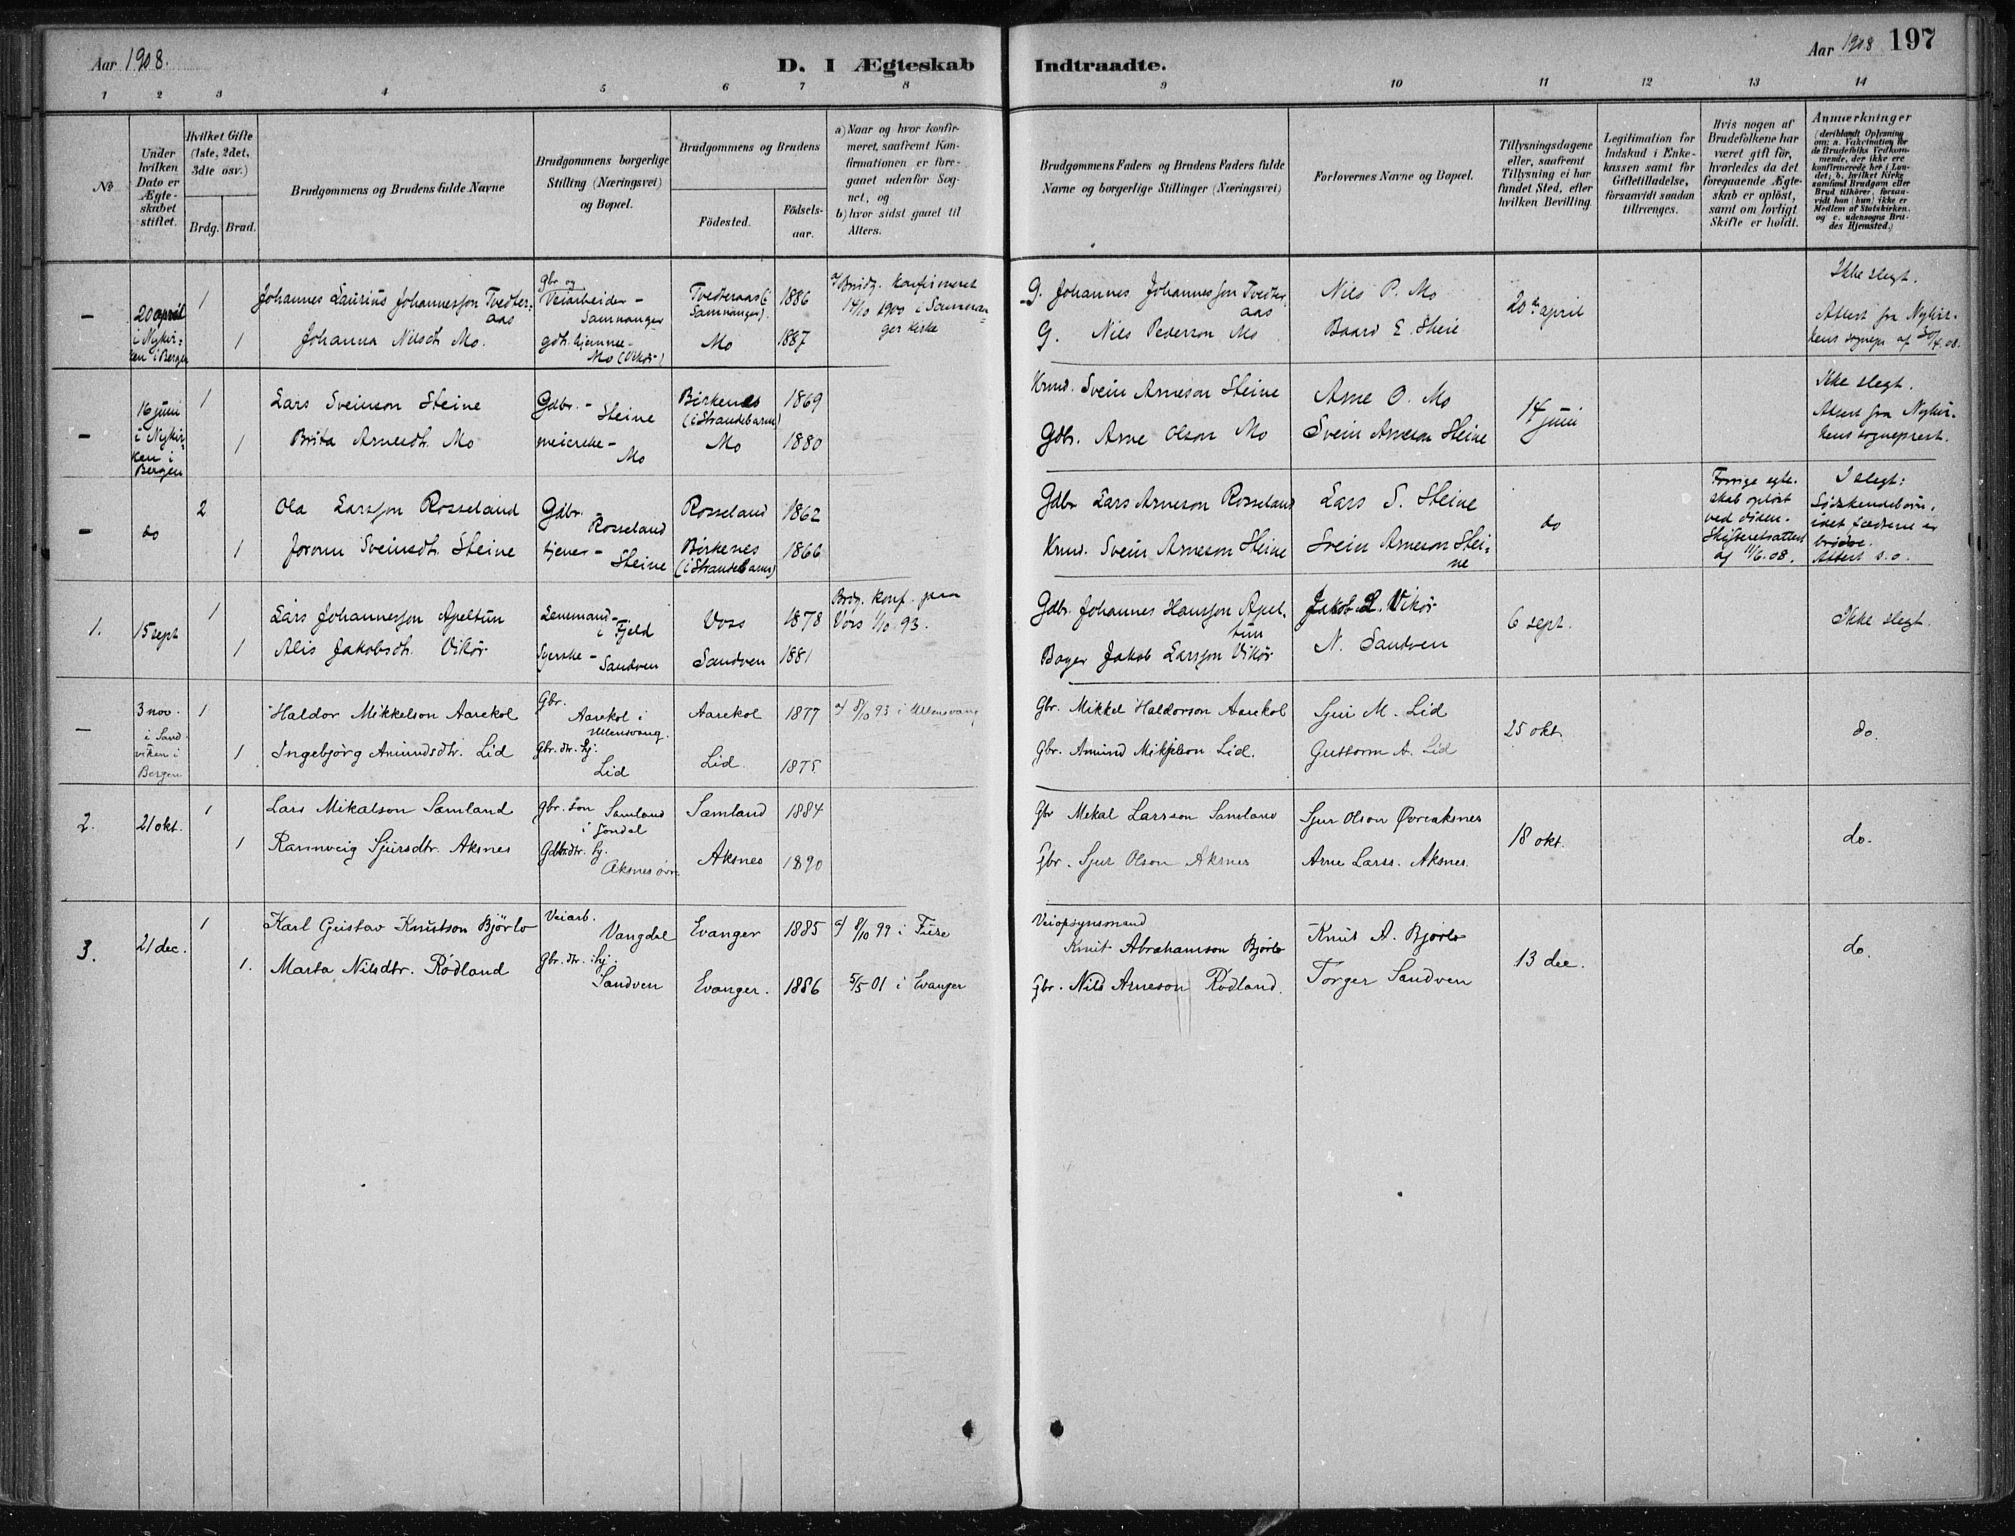 Aar 1908.
D. I Ægteskab Indtraadte.
Aar 1908 197
1 2 3 4 5 6 7 8 9 10 11 12 13 14
No
Under hvilken Dato er Ægteskabet stiftet.
Hvilket Gifte (1ste, 2det, 3die osv.)
Brdg. Brud.
Brudgommens og Brudens fulde Navne
Brudgommens borgerlige Stilling (Næringsvei) og Bopæl.
Brudgommens og Brudens
Fødested. Fødsels-aar.
a) Naar og hvor konfirmeret, saafremt Konfirmationen er foregaaet udenfor Sognet, og
b) hvor sidst gaaet til Alters.
Brudgommens Faders og Brudens Faders fulde Navne og borgerlige Stillinger (Næringsvei)
Forlovernes Navne og Bopæl.
Tillysningsdagene eller, saafremt Tillysning ei har fundet Sted, efter hvilken Bevilling.
Legitimation for Indskud i Enkekassen samt for Giftetilladelse, forsaavidt saadan tiltrænges.
Hvis nogen af Brudefolkene har været gift før, hvorledes da det foregaaende Ægteskab er opløst, samt om lovligt Skifte er holdt.
Anmærkninger
(deriblandt Oplysning om: a. Vakcination for de Brudefolks Vedkommende, der ikke ere konfirmerede her i Landet, b. hvilket Kirkesamfund Brudgom eller Brud tilhører, forsaavidt han (hun) ikke er Medlem af Statskirken, og c. udensogns Brudes Hjemsted.)
– 20 april i Nykirken i Bergen
1 Johannes Laurius Johannesson Tvedteraas
Gbr og Veiarbeider – Samnanger
Tvedteraas (i Samnanger). 1886
a/ Brudg. konfirmeret 14/10 1900 i Samnanger kirke
G. Johannes Johannesson Tvedteraas
Nils P. Mo
20de april
Ikke slegt.
1 Johanna Nilsdt. Mo.
gdt. hjemme – Mo (Vikør)
Mo 1887
G. Nils Pederson Mo
Baard E. Steie
Attest fra Nykirkens sognepr. af 30/4.08.
– 16 juni i Nykirken i Bergen
1 Lars Sveinson Steine
Gdbr. – Steine
Birkenes (i Strandebarm) 1869
Krmd. Svein Arneson Steine
Arne O. Mo
14 juni
Ikke slegt.
1 Brita Arnesdt. Mo
meierske – Mo
Mo 1880
Gdbr. Arne Olson Mo
Svein Arneson Steine
Attest fra Nykirkens sogneprest.
– do
2 Ola Larsson Rosseland
Gdbr. Rosseland
Rosseland 1862
Gdbr Lars Arneson Rosseland
Lars S. Steine
do
Forrige egteskab opløst ved døden. Skifteretsattest af 11/6.08.
I slegt: Sødskendebørn, idet fædrene er brødre. Attest s.o.
1 Joronn Sveinsdt. Steine
tjener – Steine
Birkenes (i Strandebarm) 1866
Krmd. Svein Arneson Steine
Svein Arneson Steine
1. 15 sept
1 Lars Johannesson Apeltun
Lensmand – i Fjeld
Voss 1878
Brdg. konf. paa Vors 1/10 93.
Gdbr. Johannes Hansson Apeltun
Jakob L. Vikør
6 sept.
Ikke slegt.
1 Alis Jakobsdt. Vikør
Syerske – Sandven
Sandven 1881
Bager Jakob Larsson Vikør
N. Sandven
– 3 nov. i Sandviken i Bergen
1 Haldor Mikkelson Aarekol
Gbr. Aarekol i Ullensvang.
Aarekol 1877
a/ 8/10 93 i Ullensvang
Gbr. Mikkel Haldorson Aarekol
Sjur M. Lid
25 okt.
do.
1 Ingebjørg Amundsdtr. Lid
Gbr. dtr. hj. Lid
Lid. 1875
Gbr. Amund Mikjelson Lid.
Guttorm A. Lid
2. 21 okt.
1 Lars Mikalson Samland
Gbr. søn Samland i Jondal
Samland 1884
Gbr Mekal Larsson Samland
Sjur Olson Øvreaksnes
18 okt.
do.
1 Rannveig Sjursdtr. Aksnes
Gdbrdtr. hj. Aksnes øvr.
Aksnes 1890
Gbr. Sjur Olson Aksnes
Arne Larss. Aksnes.
3. 21 dec.
1 Karl Gustav Knutson Bjørlo
Veiarb. Vangdal
Evanger 1885
a/ 8/10 99 i Fuse
Veiopsynsmand Knut Abrahamson Bjørlo
Knut A. Bjørlo
13 dec.
do.
1. Marta Nilsdtr. Rødland
Gbr. dtr. hj. Sandven
Evanger. 1886
5/5 01 i Evanger
Gbr. Nils Arneson Rødland.
Torger Sandven